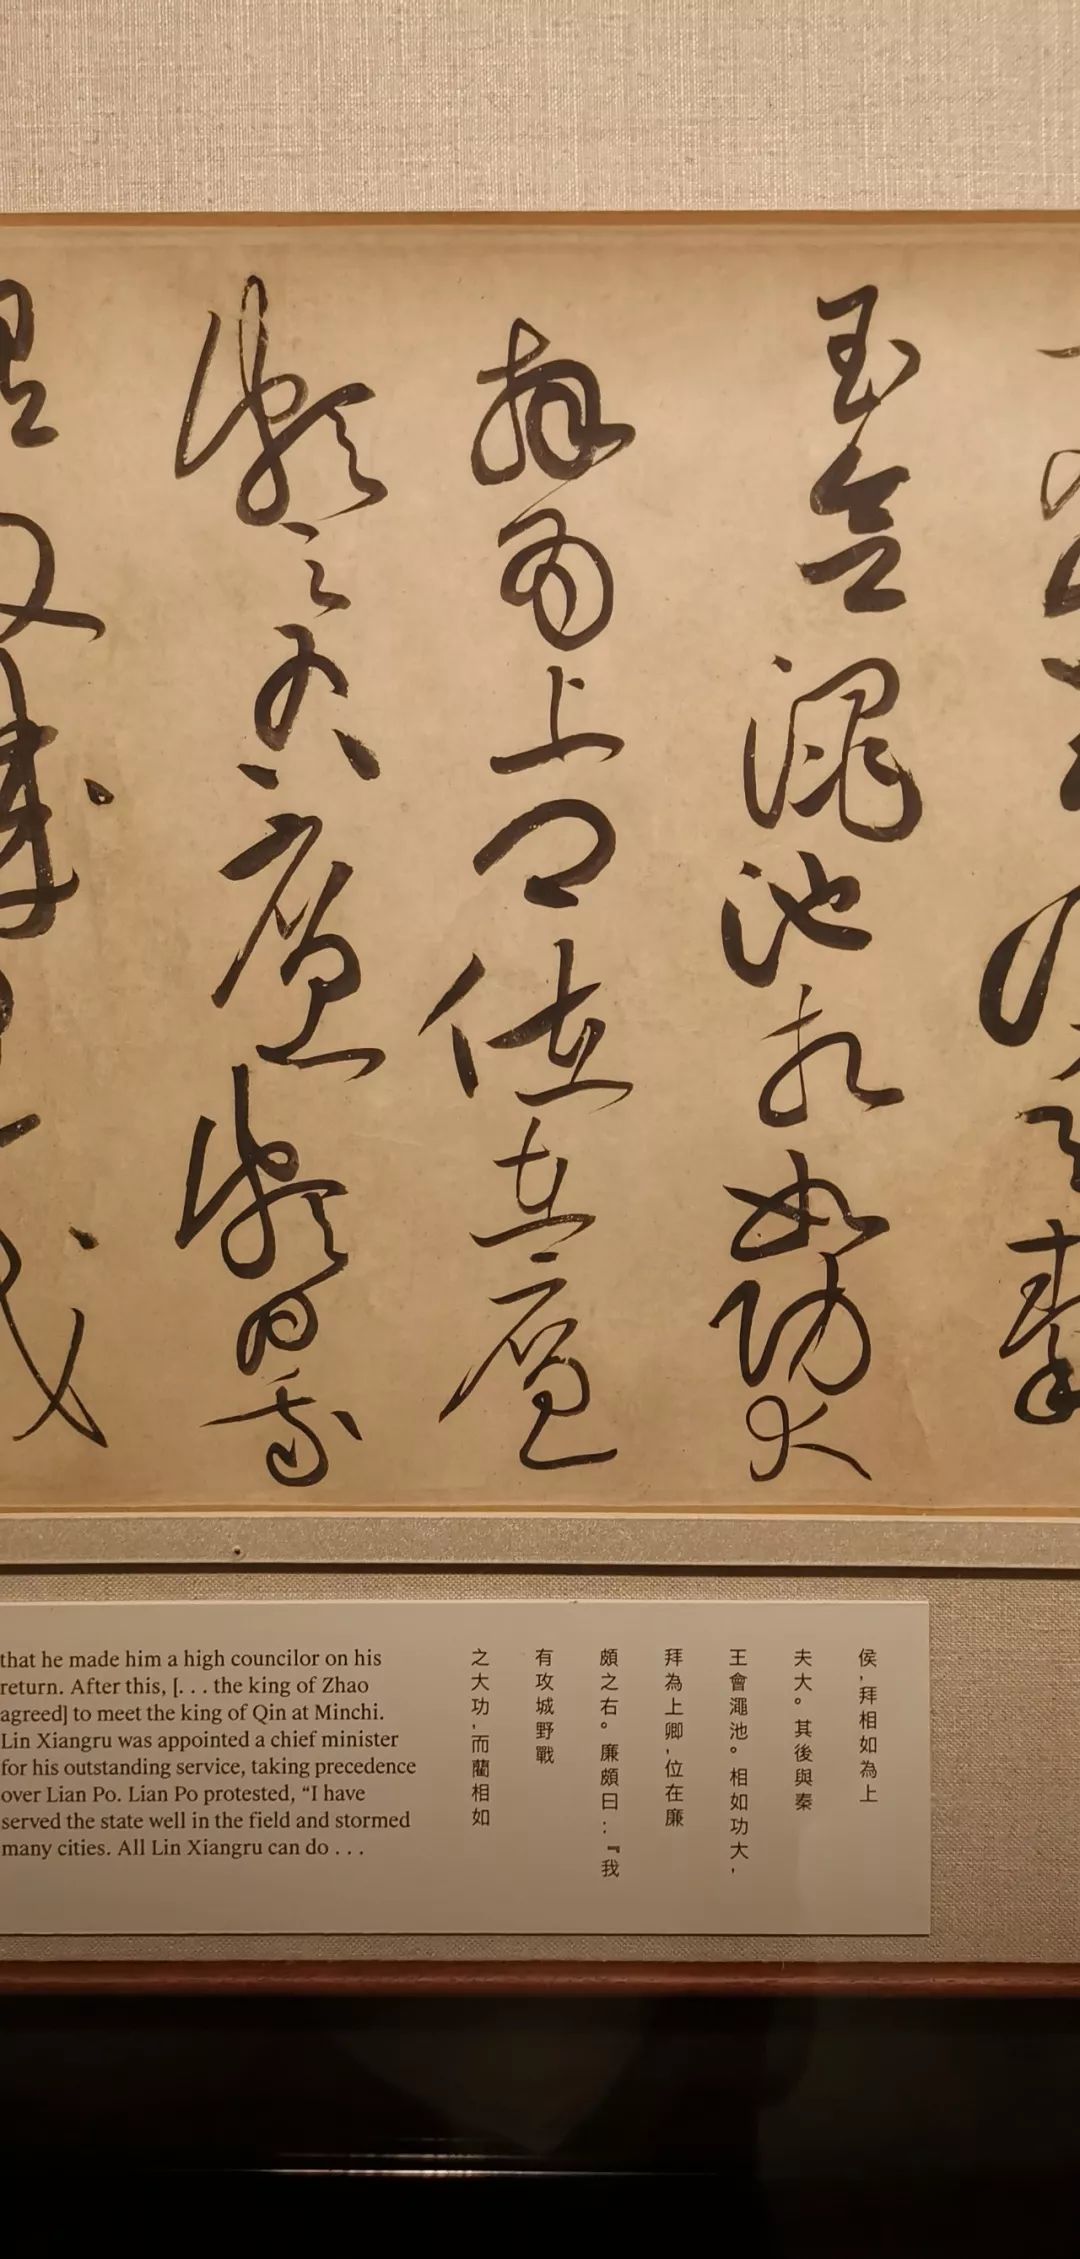 王會澠池相如功大
拜為上卿位在廉
頗之右廉頗曰我
侯，拜相如為上
夫大。其後與秦
王會澠池。相如功大，
拜為上卿，位在廉
頗之右。廉頗曰：『我
有攻城野戰
之大功，而藺相如
that he made him a high councilor on his
return. After this, [. . . the king of Zhao
agreed] to meet the king of Qin at Minchi.
Lin Xiangru was appointed a chief minister
for his outstanding service, taking precedence
over Lian Po. Lian Po protested, “I have
served the state well in the field and stormed
many cities. All Lin Xiangru can do . . .